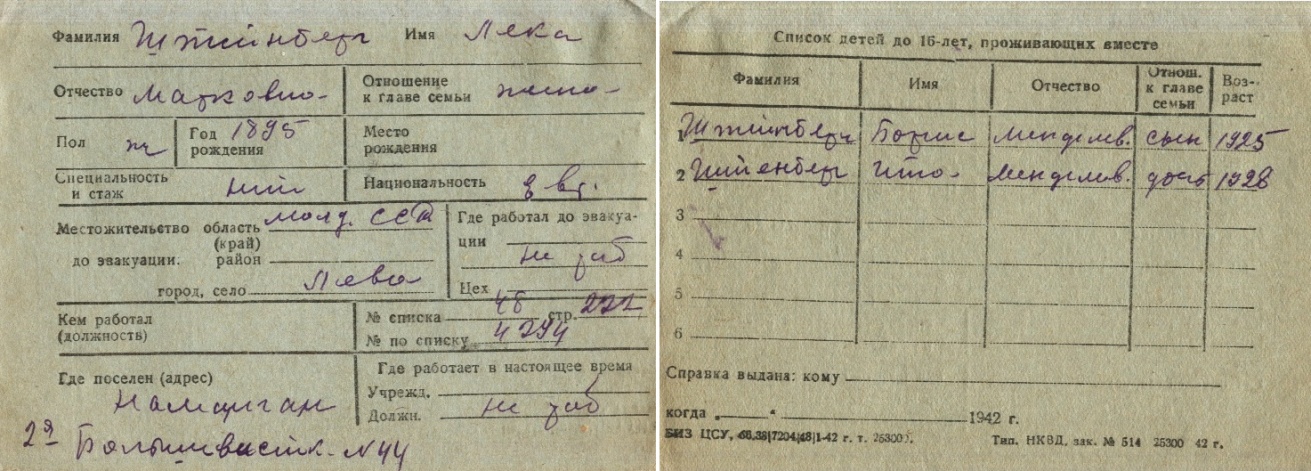 Фамилия Штейнберг Имя Лека
Отчество Марковна Отношение к главе семьи жена
Пол ж Год рождения 1895 Место рождения
Специальность и стаж Национальность евр.
Местожительство до эвакуации. область (край) Молд. ССР
район
город, село Леово
Где работал до эвакуации не раб
Цех
Кем работал (должность)
№ списка 46 стр. 222
№ по списку 4294
Где поселен (адрес) Наманган
2я Большевистск. N44
Где работает в настоящее время
Учрежд.
Должн. не раб
Список детей до 16-лет, проживающих вместе
Фамилия Имя Отчество Отнош. к главе семьи Воз-раст
1 Штейнберг Борис Менделев. сын 1925
2 Штейнберг Ита Менделев. дочь 1928
3
4
5
6
Справка выдана: кому
когда „ “ 1942 г.
БИЗ ЦСУ, 1-42 г. т. 25300. Тип. НКВД, зак. № 514 25300 42 г.